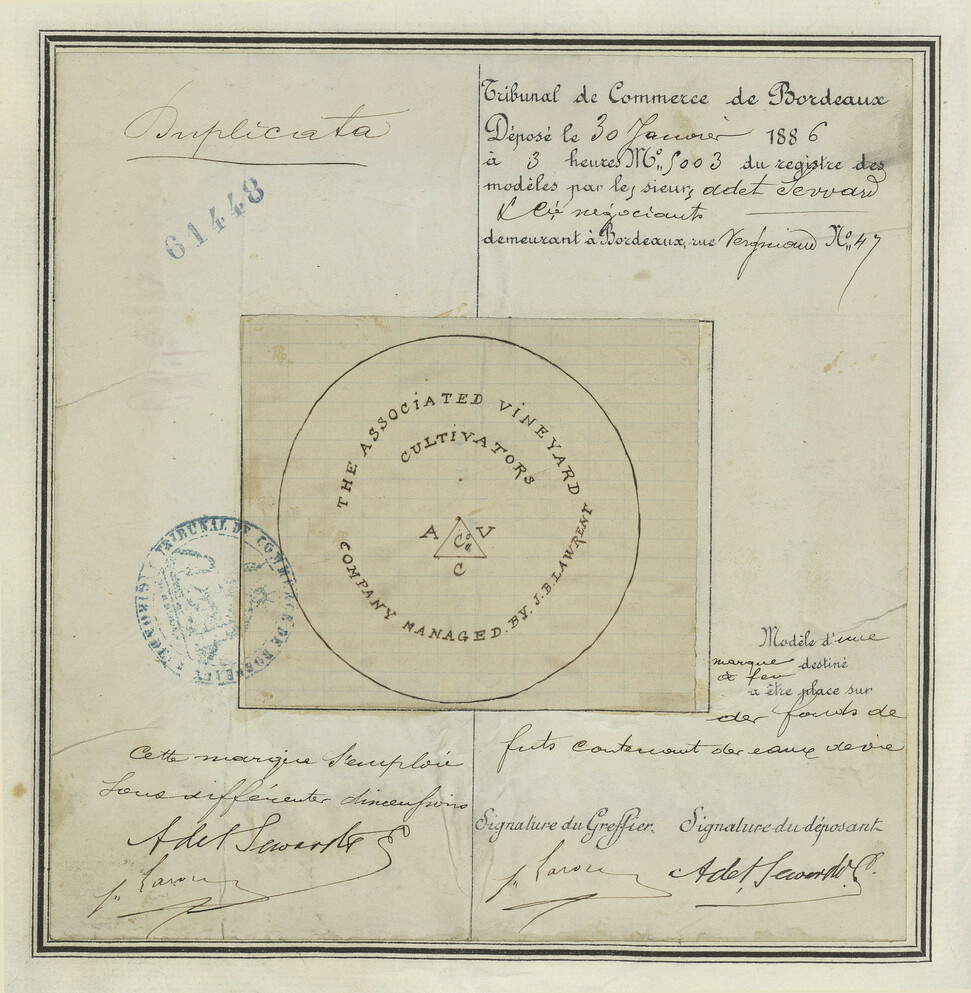 Duplicata
61448
Tribunal de Commerce de Bordeaux
Déposé le 30 Janvier 1886
à 3 heures N° 5003 du registre des
modèles par les sieurs Adet Seward
& Cie négociants
demeurant à Bordeaux, rue Vergniaud N° 47
THE ASSOCIATED VINEYARD
CULTIVATORS
A Co. Ld V
C
COMPANY MANAGED. BY. J.B. LAWRENT
TRIBUNAL DE COMMERCE DE BORDEAUX
Modèle d'une
marque destiné
à feu
a être place sur
des fonds de
futs contenant des eaux de vie
Cette marque s'emploie
sous différentes dimensions
Adet Seward & C
Signature du Greffier. Signature du déposant
Adet, Seward & C.